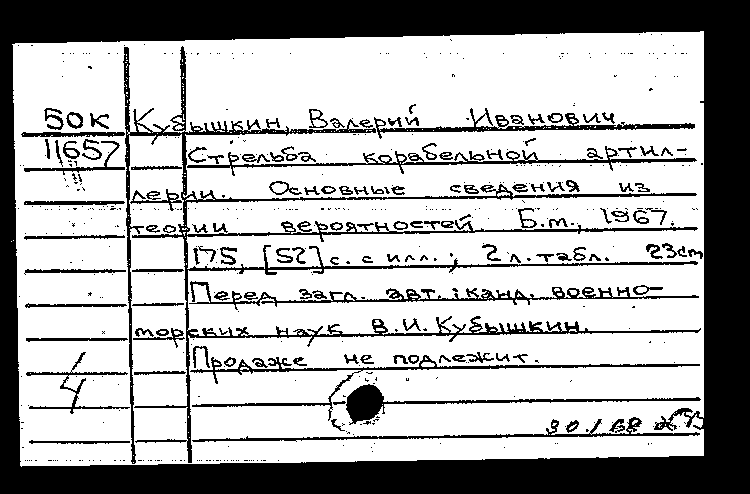 50К Кубышкин, Валерий Иванович.
11657 Стрельба корабельной артил-
лерии. Основные сведения из
теории вероятностей. Б.м., 1967.
175, [52] с. с илл.; 2 л. табл. 23cm
Перед загл. авт.: канд. военно-
морских наук В.И. Кубышкин.
Продаже не подлежит.
4
30.1 68